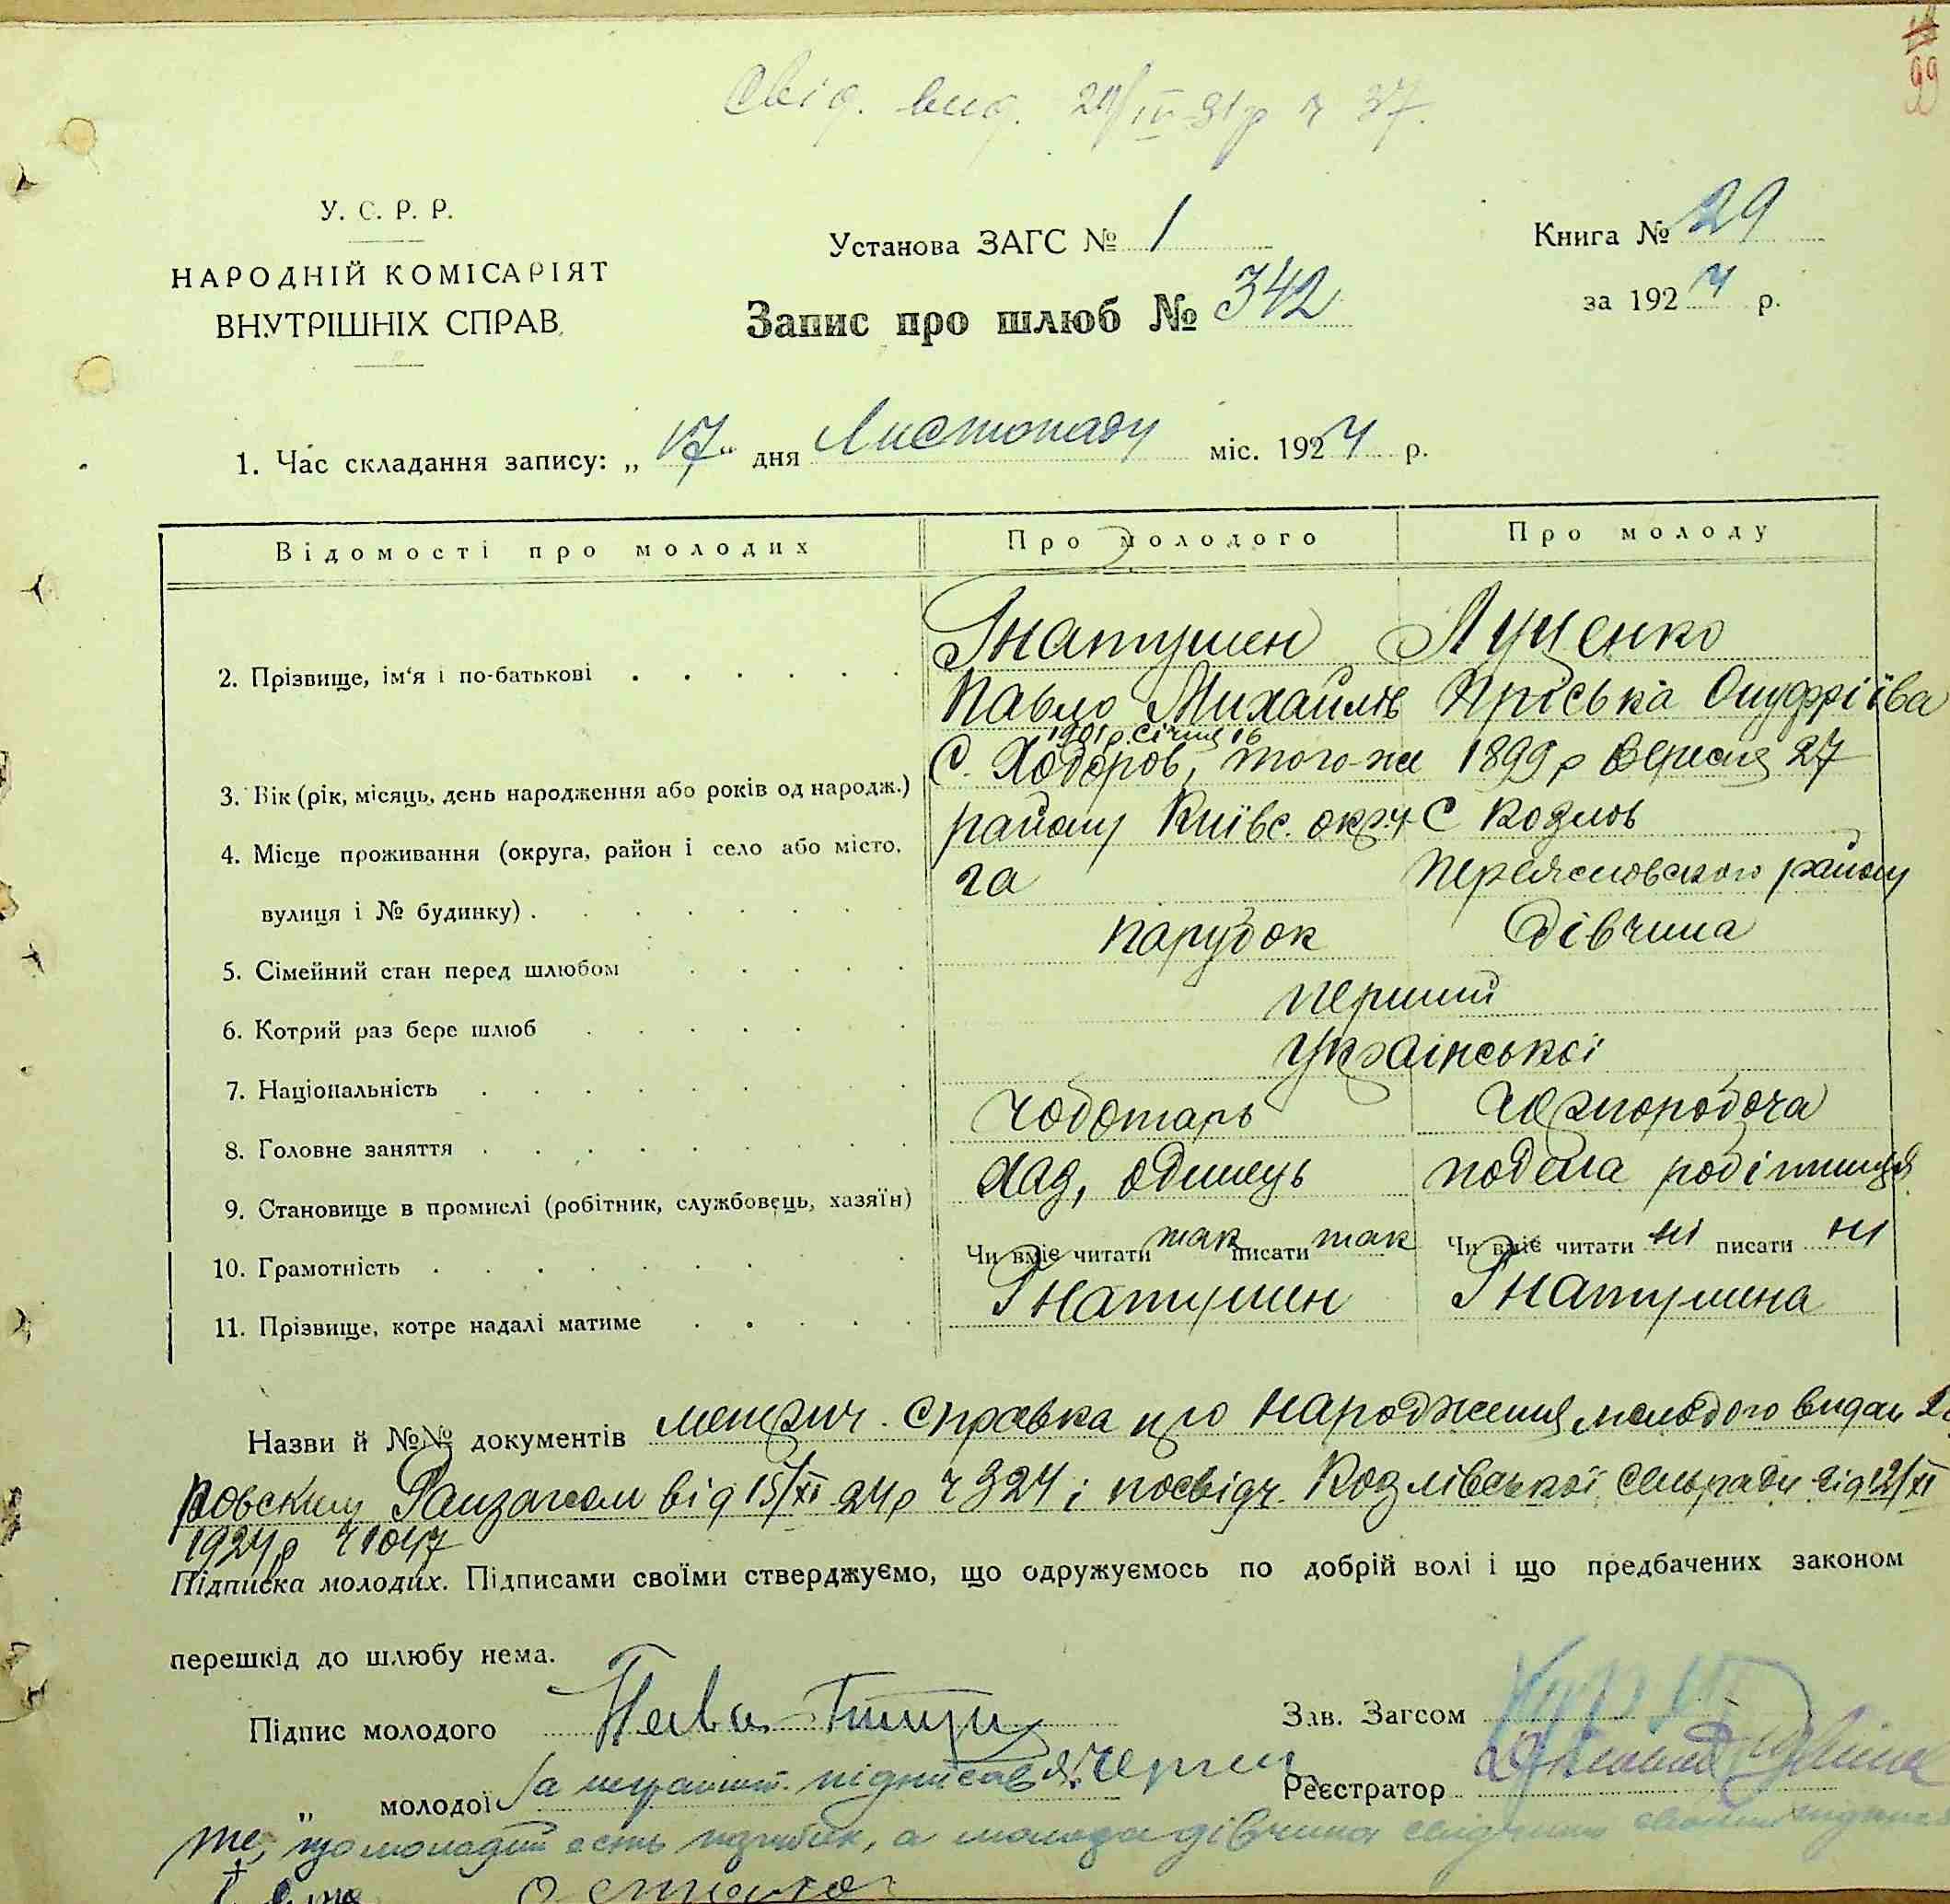 99
Свід. вид. 29/IV-31р ч 37.
У. С. Р. Р.
НАРОДНІЙ КОМІСАРІЯТ
ВНУТРІШНІХ СПРАВ
Установа ЗАГС № 1
Запис про шлюб № 342
Книга № 29
за 1924 р.
1. Час складання запису: „17“ дня Листопаду міс. 1924 р.
Відомості про молодих
Про молодого
Про молоду
2. Прізвище, ім‘я і по-батькові
Гнатушен
Павло Михайлів
Луценко
Пріська Онуфріїва
3. Вік (рік, місяць, день народження або років од народж.)
1901 р. Січня 16
1899 р Вересня 27
4. Місце проживання (округа, район і село або місто,
вулиця і № будинку)
С. Ходоров, того-же
району Київс. окру
га
С Козлов
Переясловського району
5. Сімейний стан перед шлюбом
парубок
дівчина
6. Котрий раз бере шлюб
перший
7. Національність
Української
8. Головне заняття
Чоботарь
Чорноробоча
9. Становище в промислі (робітник, службовець, хазяїн)
Хаз, одинець
подена робітниця
10. Грамотність
Чи вміє читати так писати так
Чи вміє читати ні писати ні
11. Прізвище, котре надалі матиме
Гнатушен
Гнатушена
Назви й №№ документів метрич. справка про народження молодого видан
ровским Райзагсом від 15/XI 24р ч 324 і посвідч. Козлівської сельради від 12/XI
1924р ч 1047
Підписка молодих. Підписами своїми стверджуємо, що одружуємось по добрій волі і що предбачених законом
перешкід до шлюбу нема.
Підпис молодого
Зав. Загсом
„ молодої За неграмот. підписав
Реєстратор
те, що молодий есть парубок, а молода дівчина свідчимо своїми